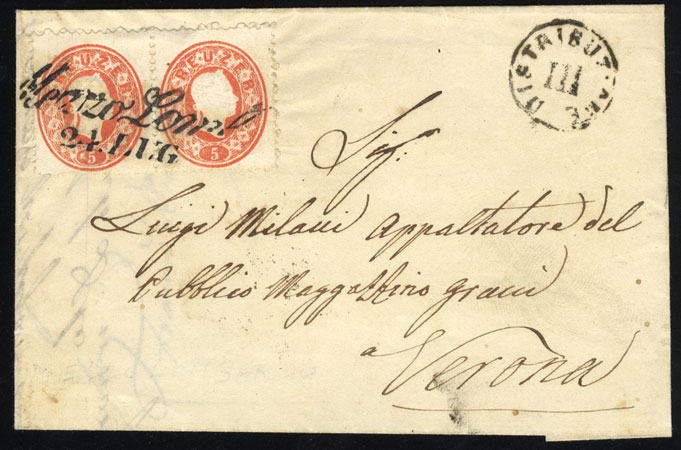 KREUZER KREUZER
5 5
Mezzo Lomb.
24. LUG
DISTRIBUZ
III
Sigr.
Luigi Milani Appaltatore del
Pubblico Maggazzino Grani
a
Verona